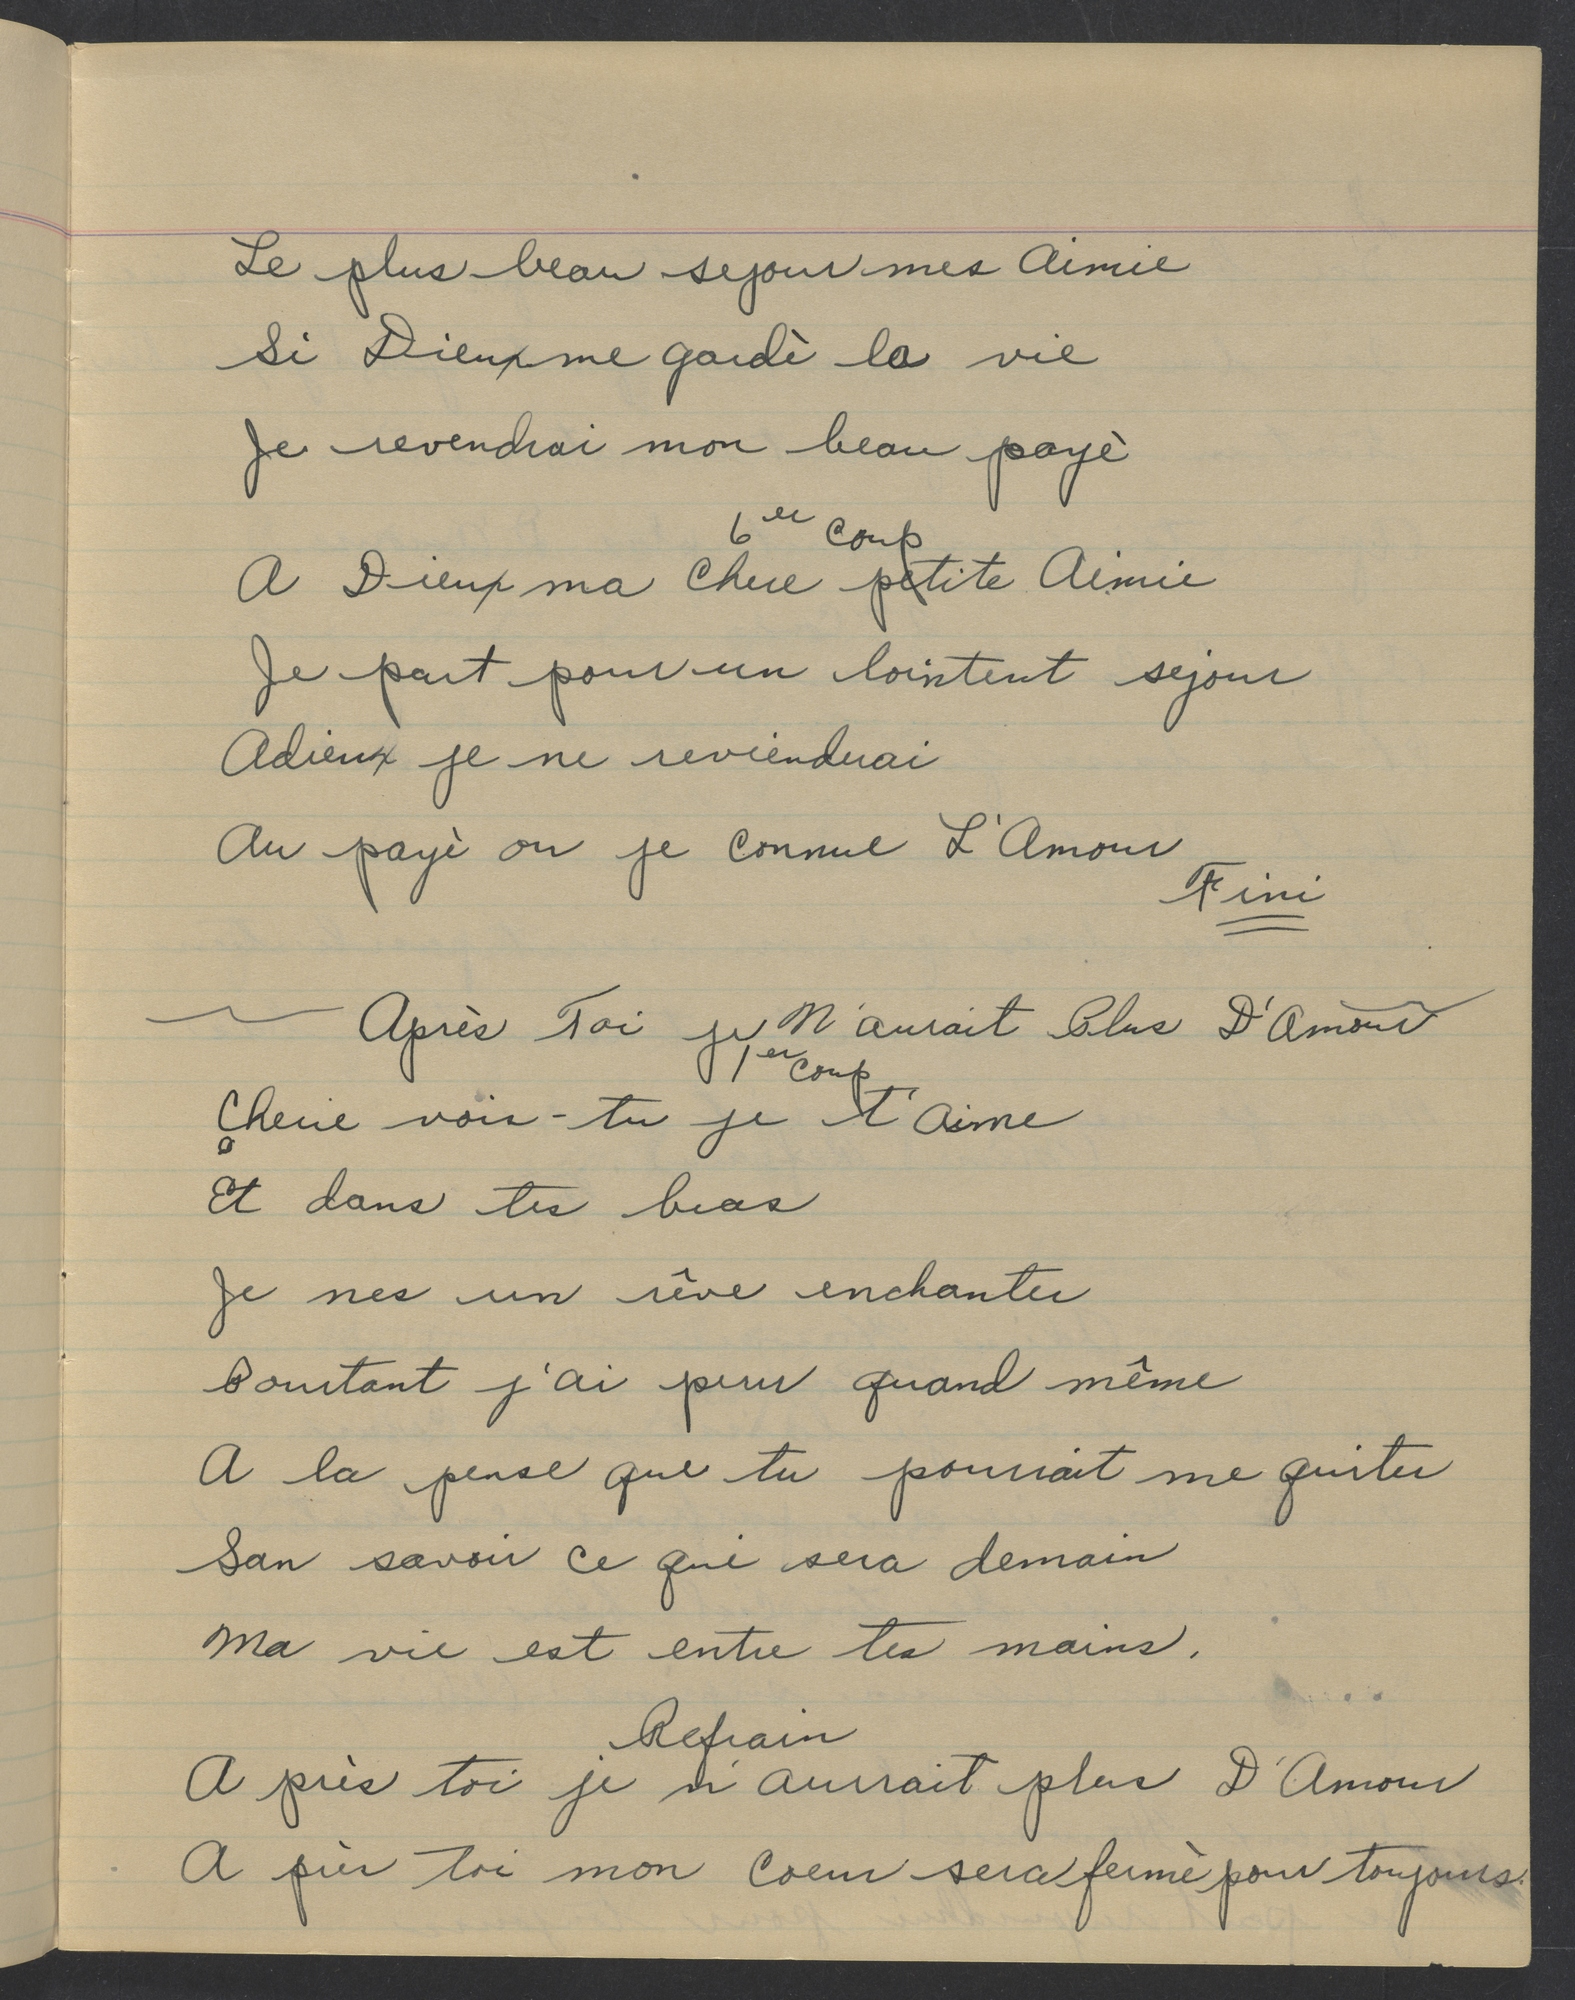 Le plus beau sejour mes Aimie
Si Dieux me gardè la vie
Je revendrai mon beau payè
6er Coup
A Dieux ma Chere petite Aimie
Je part pour un lointent sejour
Adieux je ne reviendrai
Au payè ou je connue L'Amour
Fini
Après Toi je N'aurait Plus D'Amour
1er Coup
Cherie vois-tu je t'aime
Et dans tes bras
Je nes un rêve enchanter
Pourtant j'ai peur quand même
A la pense que tu pourrait me quiter
San savoir ce qui sera demain
Ma vie est entre tes mains.
Refrain
A près toi je n'aurrait plus D'Amour
A pèr toi mon coeur sera fermè pour toujours.